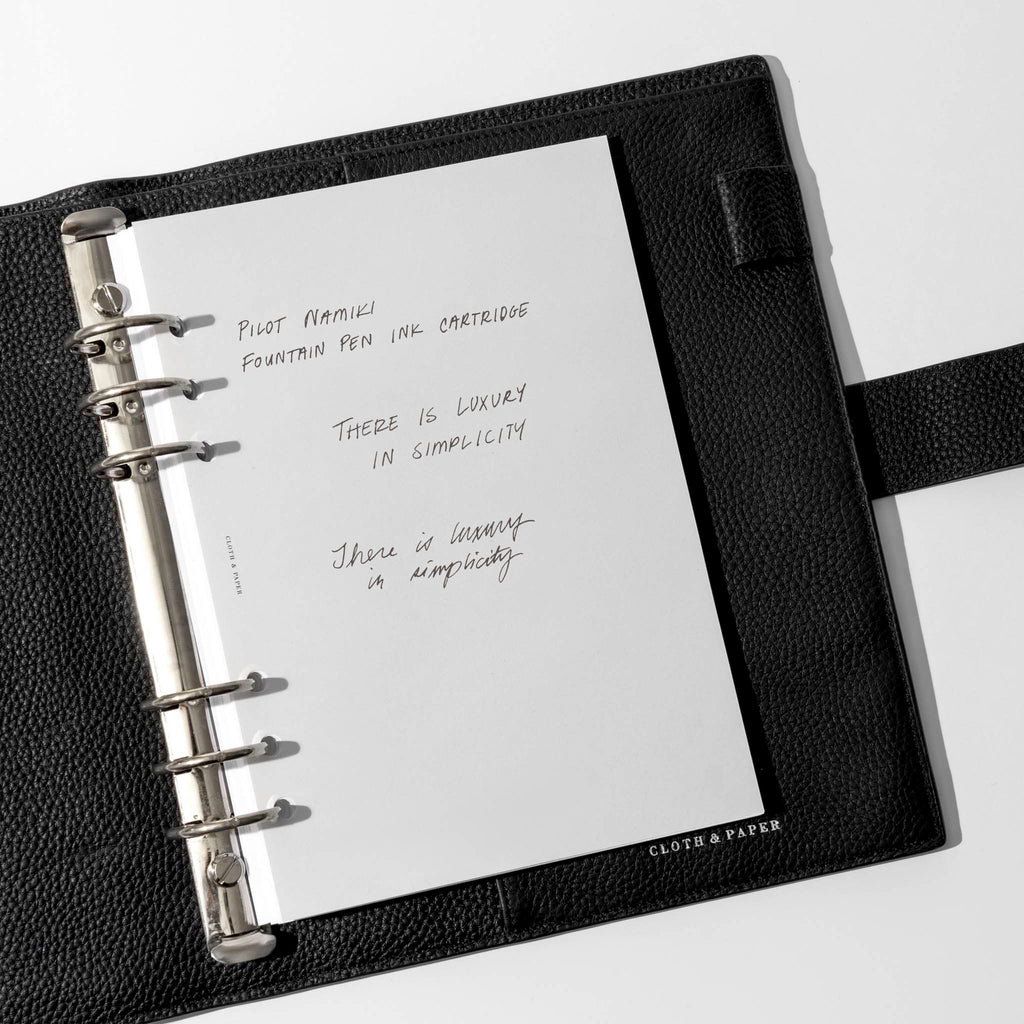 PILOT NAMIKI
FOUNTAIN PEN INK CARTRIDGE
THERE IS LUXURY
IN SIMPLICITY
There is luxury
in simplicity
CLOTH & PAPER
CLOTH & PAPER